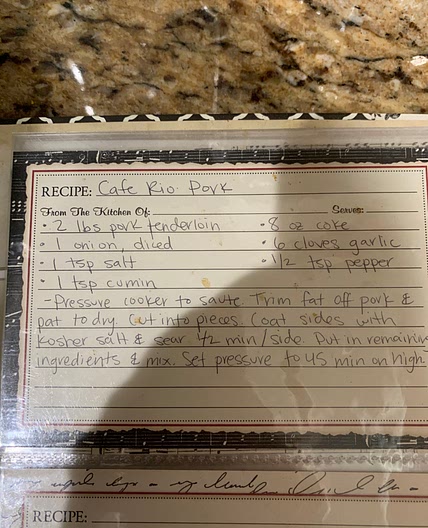 RECIPE: Cafe Rio Pork
From The Kitchen Of: Serves:
• 2 lbs pork tenderloin • 8 oz coke
• 1 onion, diced • 6 cloves garlic
• 1 tsp salt • 1/2 tsp pepper
• 1 tsp cumin
- Pressure cooker to saute. Trim fat off pork &
pat to dry. Cut into pieces. Coat sides with
kosher salt & sear 1/2 min/side. Put in remaining
ingredients & mix. Set pressure to 45 min on high
RECIPE: